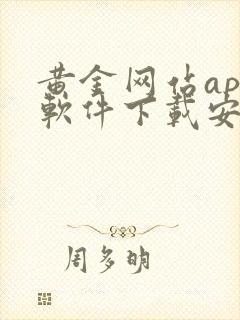 黄金网佔ap
軟件下載安
周多明